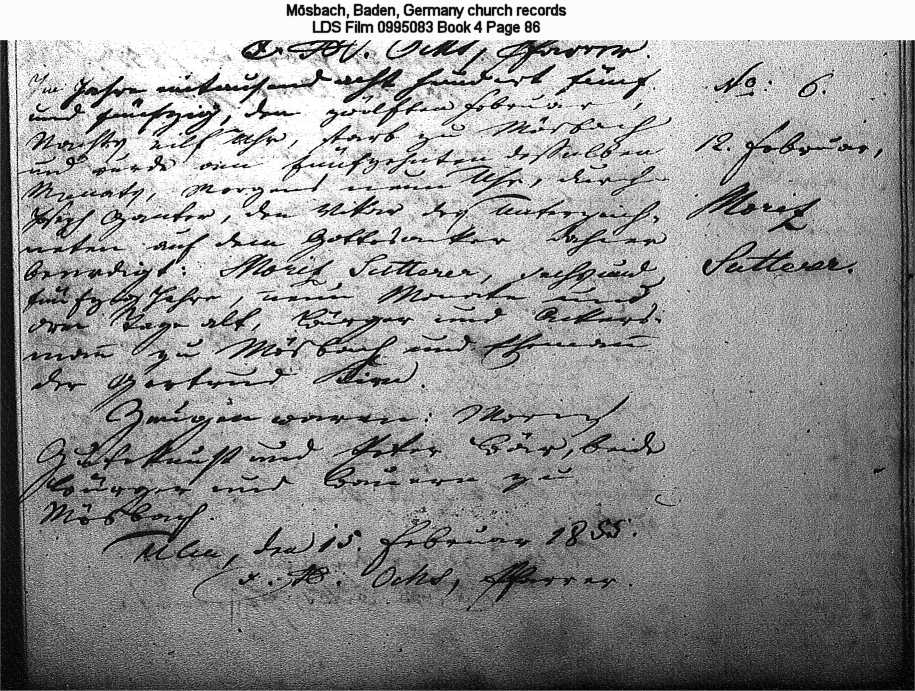 Mösbach, Baden, Germany church records
LDS Film 0995083 Book 4 Page 86
Ochs, Pfarrer.
Im Jahre eintausend acht hundert fünf
und fünfzig, den zwölften Februar,
Nachts Uhr, starb zu Mösbach
und wurde am fünfzehnten desselben
Monats, Morgens neun Uhr, durch
Joseph Ganter, den Vikar des Unterzeich-
neten auf dem Gottesacker dahier
beerdigt: Moritz Sutterer, sechs und
fünfzig Jahre, neun Monate und
drei Tage alt, Bürger und Ackers-
mann zu Mösbach und Ehemann
der Gertrud
Zeugen waren:
und Peter Bär, beide
Bürger und Bauern zu
Mösbach.
Ulm, den 15. Februar 1855.
Ochs, Pfarrer.
No: 6.
12. Februar,
Moritz
Sutterer.